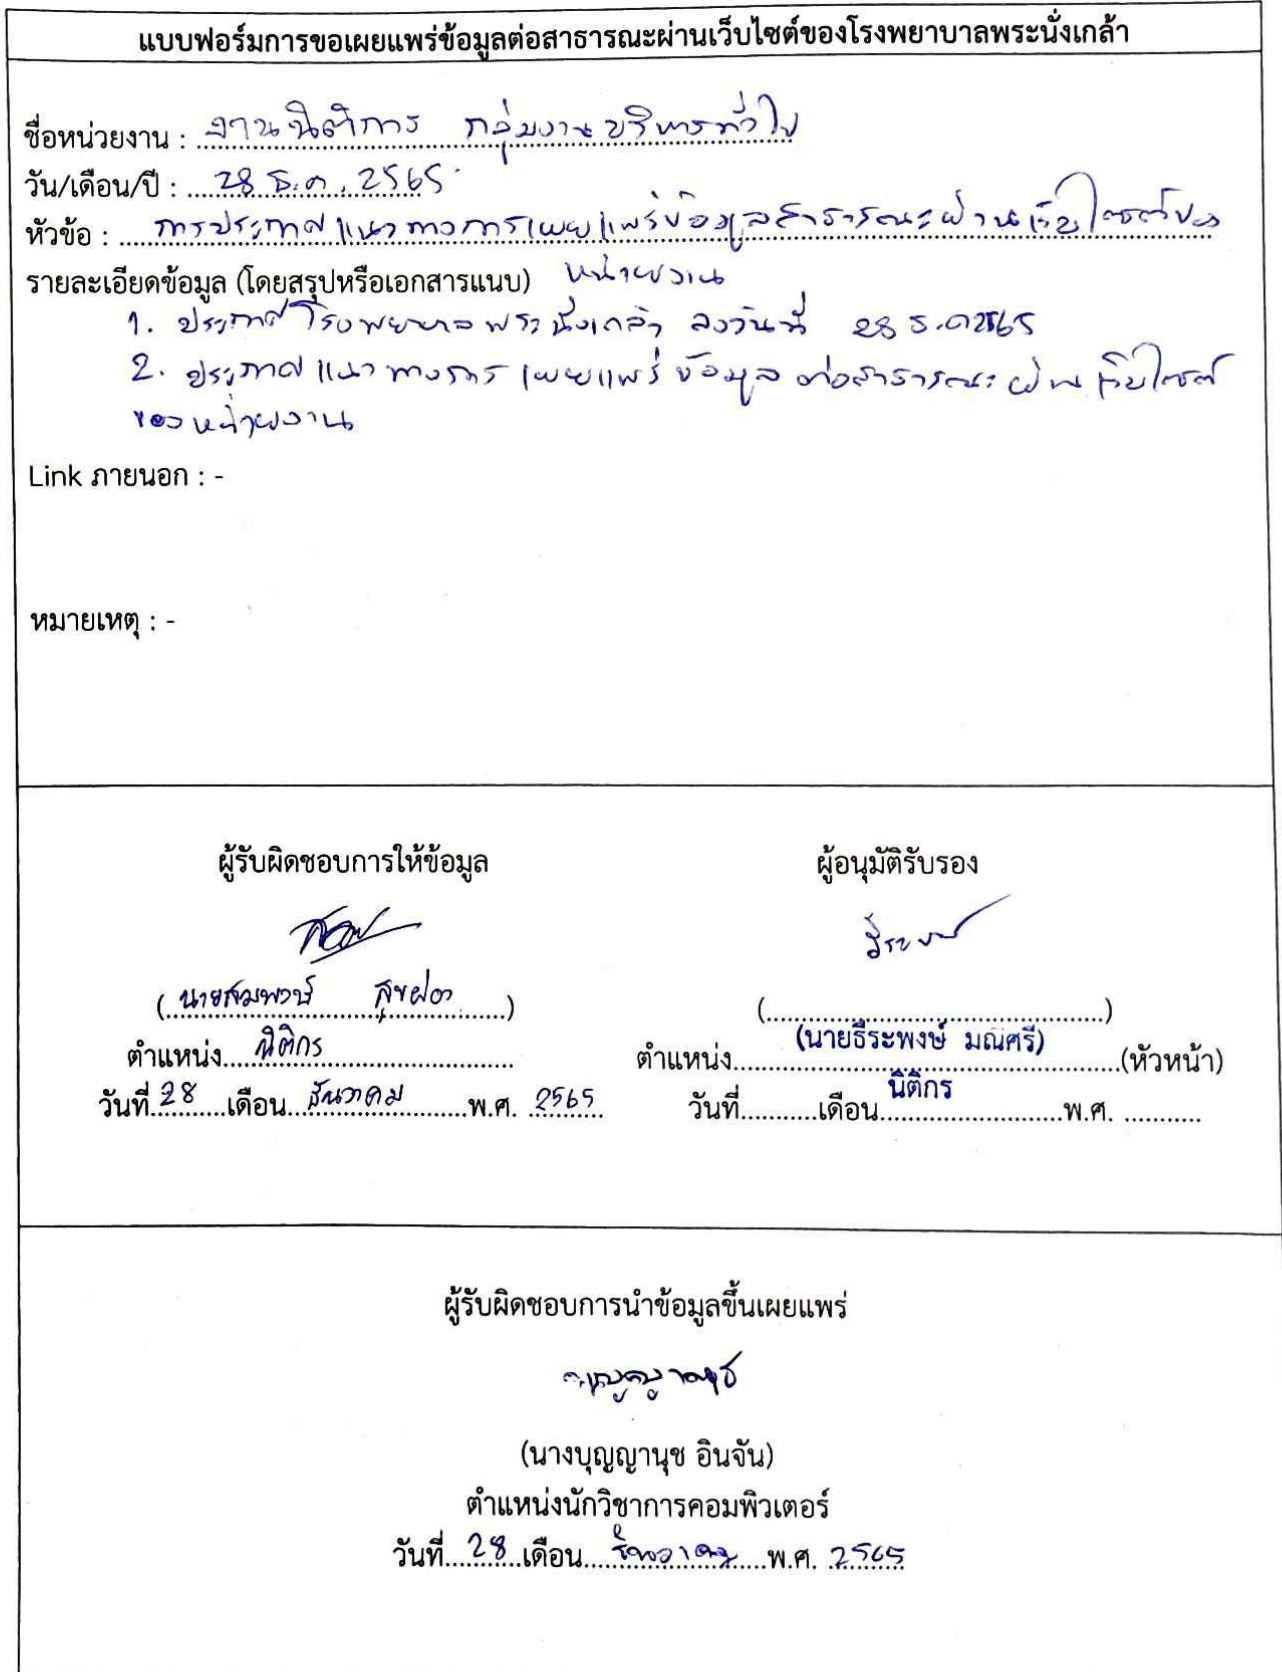 แบบฟอร์มการขอเผยแพร่ข้อมูลต่อสาธารณะผ่านเว็บไซต์ของโรงพยาบาลพระนั่งเกล้า
ชื่อหน่วยงาน : งานนิติการ กลุ่มงานบริหารทั่วไป
วัน/เดือน/ปี : 28 ธ.ค. 2565
หัวข้อ : การประกาศแนวทางการเผยแพร่ข้อมูลสาธารณะผ่านเว็บไซต์ของ
รายละเอียดข้อมูล (โดยสรุปหรือเอกสารแนบ) หน่วยงาน
1. ประกาศโรงพยาบาลพระนั่งเกล้า ลงวันที่ 28 ธ.ค 2565
2. ประกาศแนวทางการเผยแพร่ข้อมูลต่อสาธารณะผ่านเว็บไซต์
ของหน่วยงาน
Link ภายนอก : -
หมายเหตุ : -
ผู้รับผิดชอบการให้ข้อมูล ผู้อนุมัติรับรอง
ธีระพงษ์
(นายสมพงษ์ สุขฝอ) (....................)
(นายธีระพงษ์ มณีศรี)
ตำแหน่ง นิติกร ตำแหน่ง....................(หัวหน้า)
นิติกร
วันที่ 28 เดือน ธันวาคม พ.ศ. 2565 วันที่...........เดือน....................พ.ศ. ...........
ผู้รับผิดชอบการนำข้อมูลขึ้นเผยแพร่
(นางบุญญานุช อินจัน)
ตำแหน่งนักวิชาการคอมพิวเตอร์
วันที่ 28 เดือน ธันวาคม พ.ศ. 2565